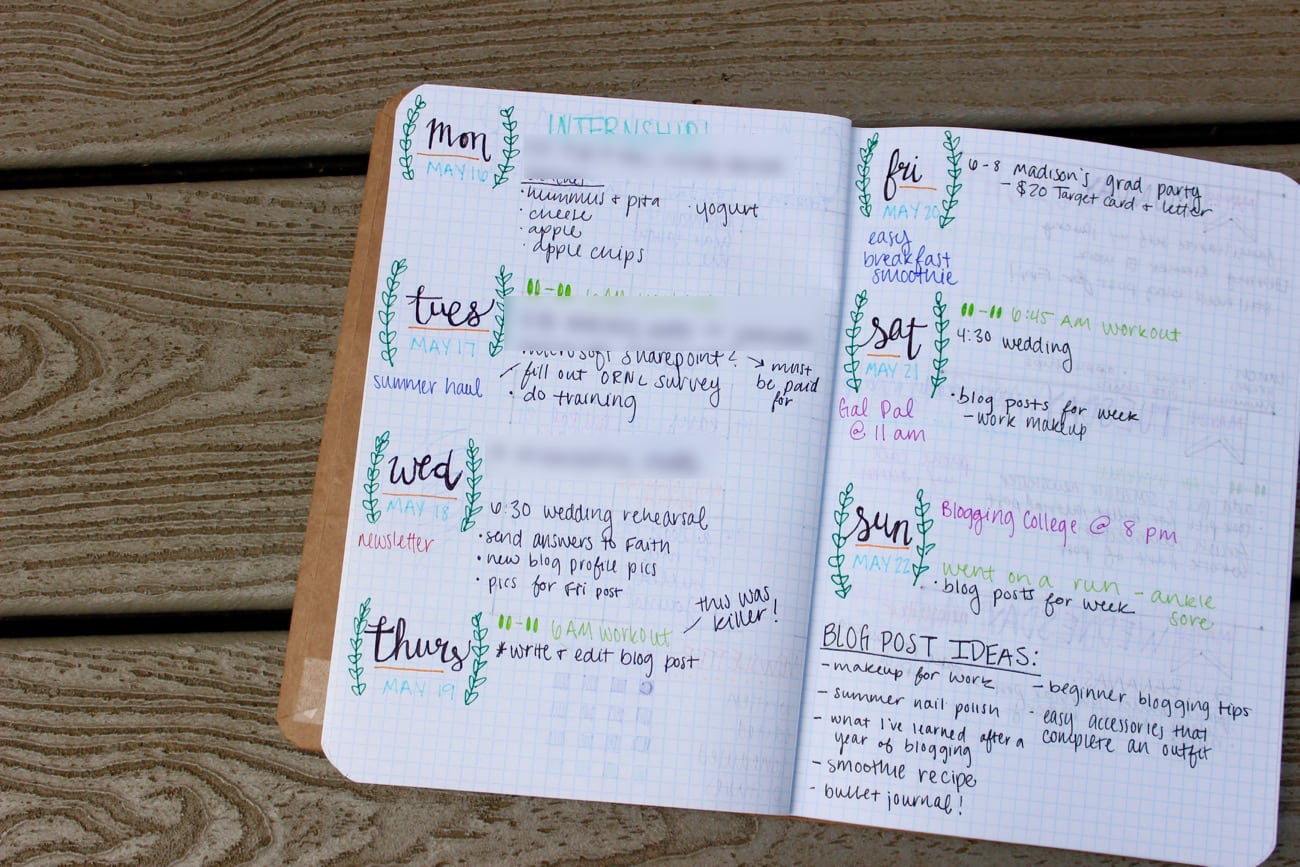 mon
MAY 16
INTERNSHIP!
· hummus + pita
· yogurt
· cheese
· apple
· apple chips
tues
MAY 17
summer haul
6 AM workout
· microsoft sharepoint?
→ must
be paid
for
fill out ORNL survey
· do training
wed
MAY 18
newsletter
6:30 wedding rehearsal
· send answers to Faith
· new blog profile pics
· pics for Fri post
thurs
MAY 19
6 AM workout
this was
killer!
* write + edit blog post
fri
MAY 20
easy
breakfast
smoothie
6-8 madison's grad party
- $20 Target card + letter
sat
MAY 21
Gal Pal
@ 11 am
6:45 AM workout
4:30 wedding
· blog posts for week
- work makeup
sun
MAY 22
Blogging College @ 8 pm
went on a run - ankle
sore
· blog posts for week
BLOG POST IDEAS:
- makeup for work
- summer nail polish
- what I've learned after a
year of blogging
- smoothie recipe
- bullet journal!
- beginner blogging tips
- easy accessories that
complete an outfit